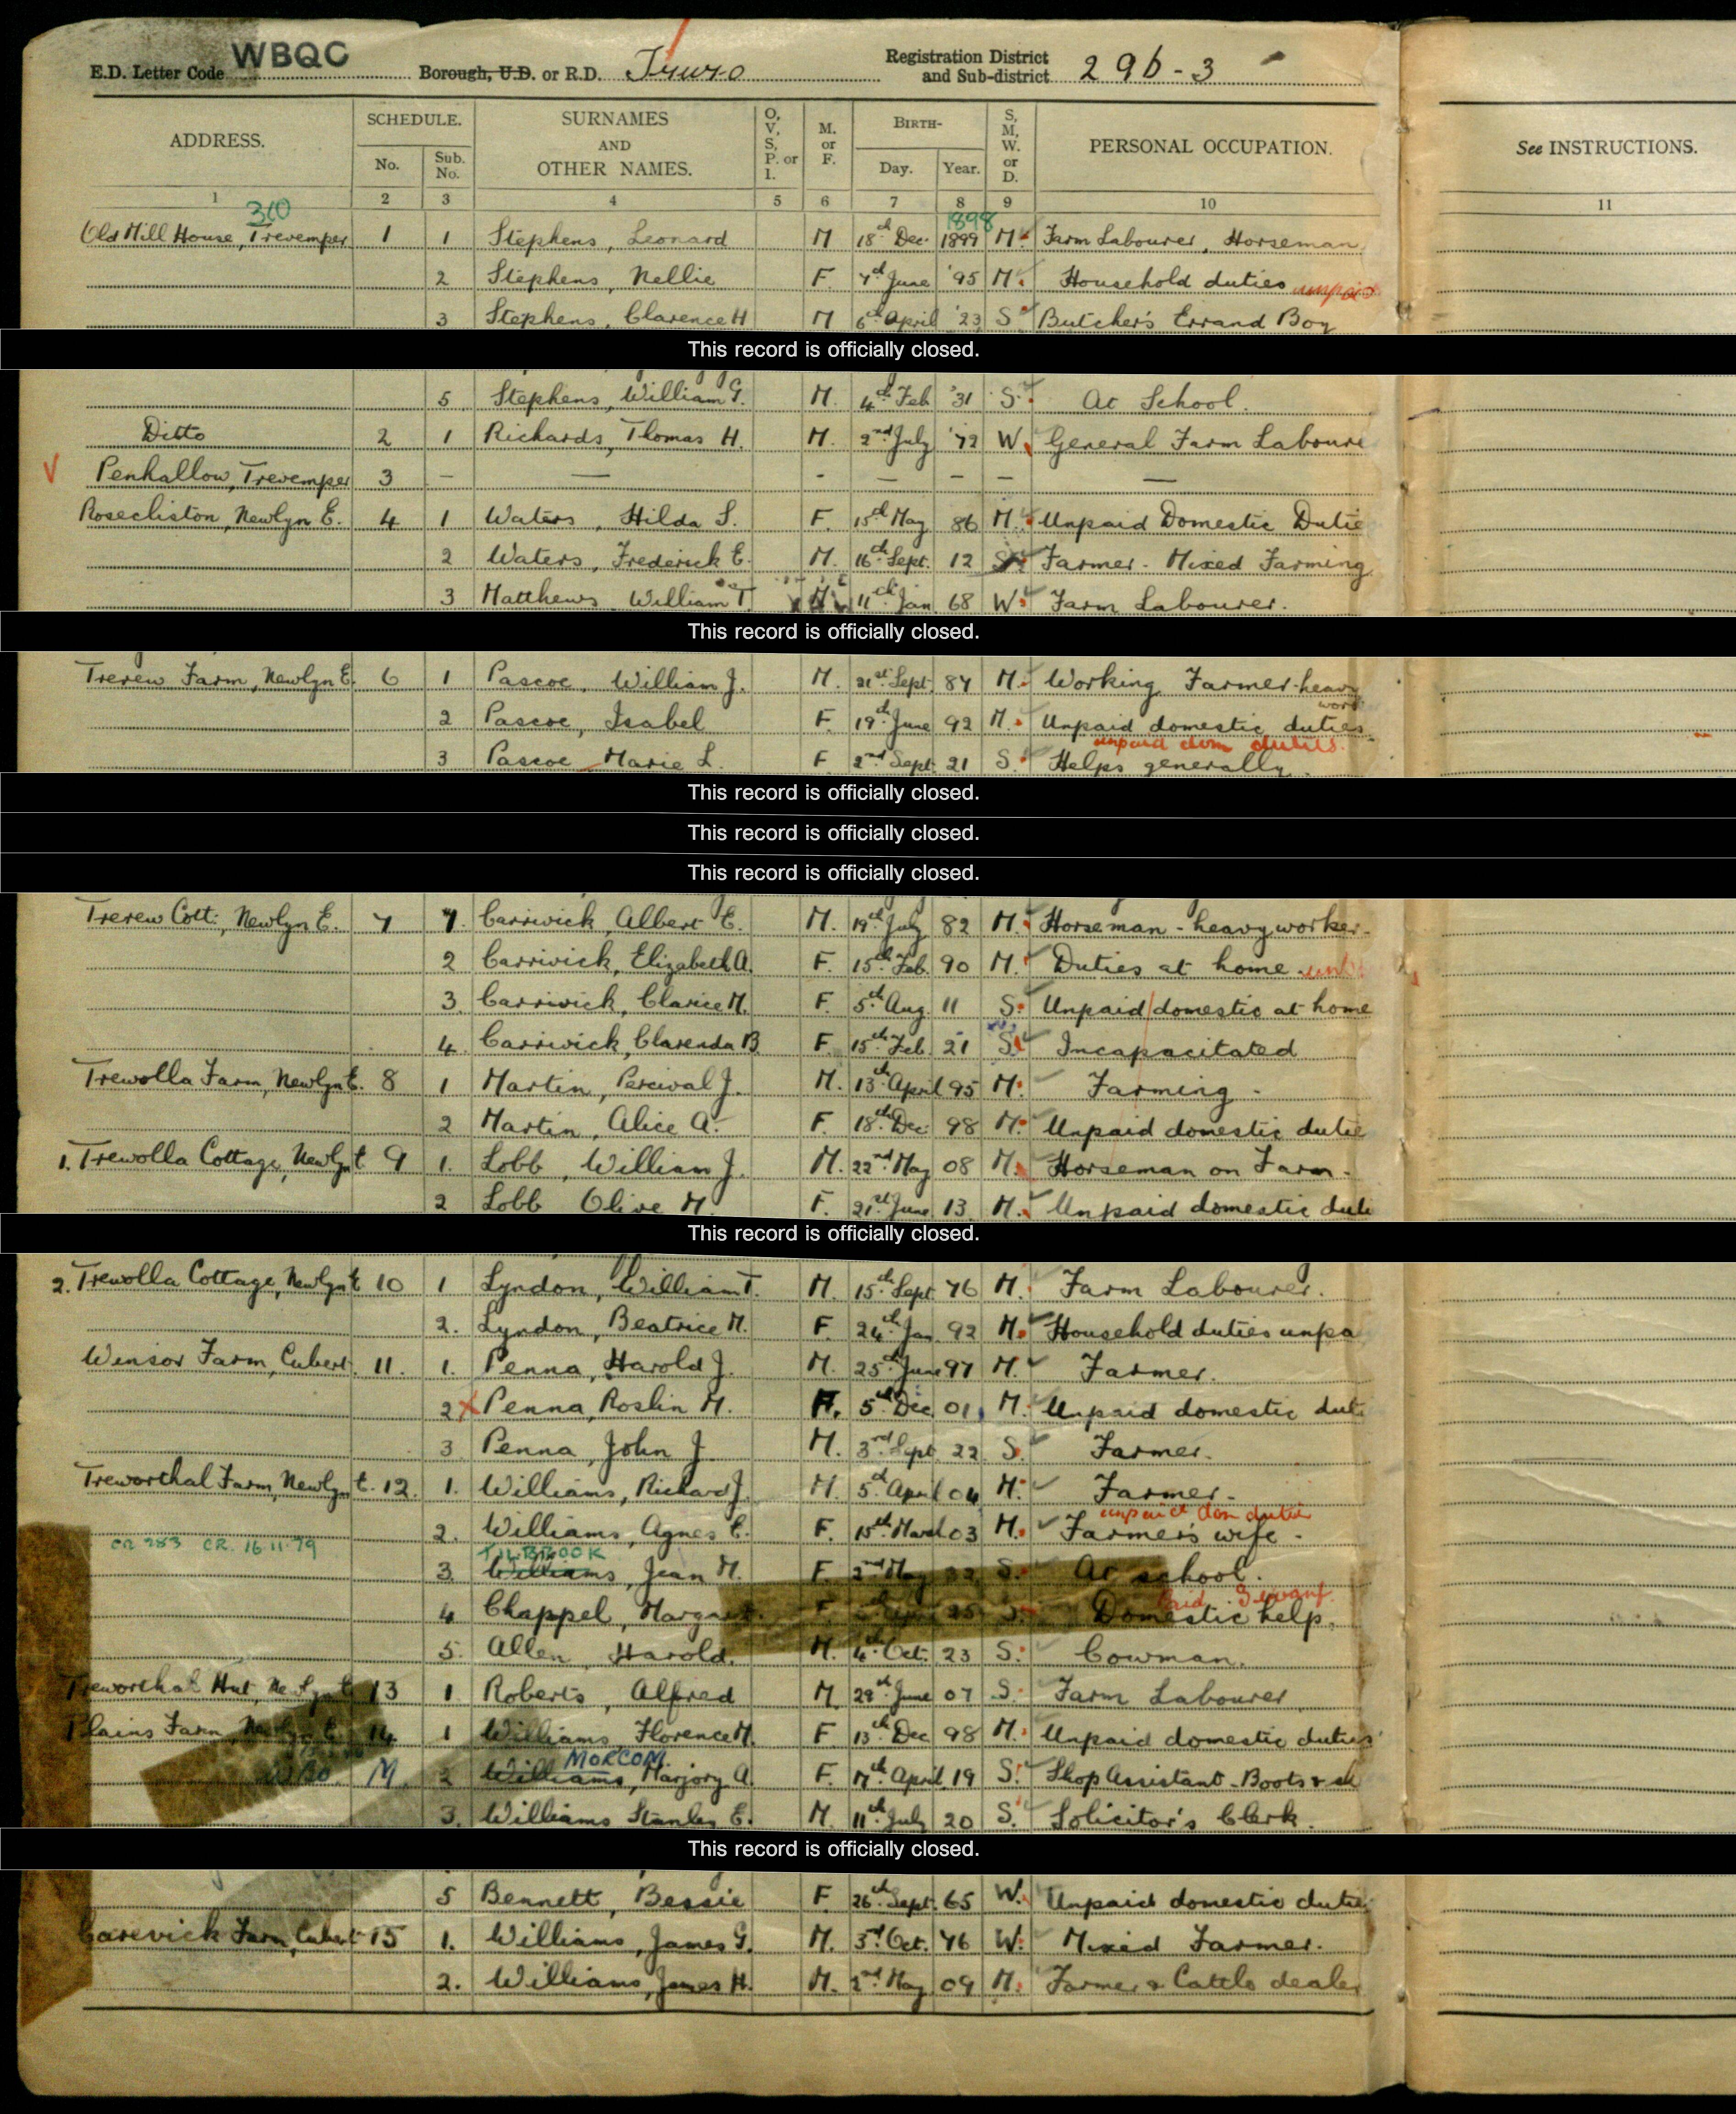 E.D. Letter Code WBQC Borough, U.D. or R.D. Truro Registration District and Sub-district 296-3
ADDRESS. SCHEDULE. No. Sub. No. SURNAMES AND OTHER NAMES. O, V, S, P. or I. M. or F. BIRTH- Day. Year. S, M, W. or D. PERSONAL OCCUPATION. See INSTRUCTIONS.
1 2 3 4 5 6 7 8 9 10 11
310 1898
Old Mill House, Trevemper 1 1 Stephens, Leonard M 18th Dec. 1899 M. Farm Labourer, Horseman
2 Stephens, Nellie F. 7th June '95 M. Household duties unpaid
3 Stephens, Clarence H M 6th April '23 S Butcher's Errand Boy
This record is officially closed.
5 Stephens, William G. M. 4th Feb '31 S. At School.
Ditto 2 1 Richards, Thomas H. M. 2nd July '72 W. General Farm Laboure
V Penhallow, Trevemper 3 – – - – – – –
Rosecliston, Newlyn E. 4 1 Waters, Hilda S. F. 15th May 86 M. Unpaid Domestic Dutie
2 Waters, Frederick E. M. 16th Sept. 12 S Farmer - Mixed Farming
3 Matthews William T. M. 11th Jan 68 W. Farm Labourer.
This record is officially closed.
Trerew Farm, Newlyn E. 6 1 Pascoe, William J. M. 21st Sept. 87 M. Working Farmer - heavy work
2 Pascoe, Isabel F. 19th June 92 M. Unpaid domestic duties.
unpaid dom duties.
3 Pascoe Marie L. F 2nd Sept. 21 S. Helps generally.
This record is officially closed.
This record is officially closed.
This record is officially closed.
Trerew Cott:, Newlyn E. 7 1. Carrivick, Albert E. M. 19th July 82 M. Horseman - heavy worker.
2 Carrivick, Elizabeth A. F. 15th Feb. 90 M. Duties at home
3. Carrivick, Clarice M. F. 5th Aug. 11 S. Unpaid domestic at home
4. Carrivick, Clarenda B. F 15th Feb. 21 S. Incapacitated
Trewolla Farm, Newlyn E. 8 1 Martin, Percival J. M. 13th April 95 M. Farming -
2 Martin, Alice A. F. 18th Dec: 98 M. Unpaid domestic dutie
1. Trewolla Cottage, Newlyn E 9 1. Lobb, William J. M. 22nd May 08 M. Horseman on Farm -
2 Lobb Olive M F. 21st June 13 M. Unpaid domestic duti
This record is officially closed.
2. Trewolla Cottage, Newlyn E 10 1 Lyndon, William T. M. 15th Sept 76 M. Farm Labourer.
2. Lyndon, Beatrice M. F. 24th Jan. 92 M. Household duties unpa
Winsor Farm, Cubert. 11. 1. Penna, Harold J. M. 25th June 97 M. Farmer.
2 X Penna, Roslin M. F. 5th Dec 01 M. Unpaid domestic duti
3. Penna, John J M. 3rd Sept 22 S. Farmer.
Treworthal Farm, Newlyn E. 12. 1. Williams, Richard J. M. 5th April 04 M. Farmer -
unpaid dom duties
2. Williams, Agnes E. F. 15th March 03 M. Farmer's wife -
CR 283 CR. 16.11.79 TILBROOK
3. Williams, Jean M. F 2nd May 32 S. At school.
Paid Servant
4 Chappel, Margaret F 25 S. Domestic help.
5. Allen Harold. M. 4th Oct. 23 S. Cowman.
Treworthal Hut, Newlyn E 13 1 Roberts, Alfred M 29th June 07 S. Farm Labourer
Plains Farm, Newlyn E. 14 1 Williams, Florence M. F 13th Dec 98 M. Unpaid domestic duties
MORCOM
M. 2 Williams, Marjory A. F. 17th April 19 S. Shop Assistant - Boots & sh
3. Williams Stanley E. M 11th July 20 S. Solicitor's Clerk.
This record is officially closed.
5 Bennett, Bessie F 26th Sept. 65 W. Unpaid domestic dutie
Carevick Farm, Cubert 15 1. Williams, James G. M. 3rd Oct. 76 W. Mixed Farmer.
2. Williams, James H. M. 2nd May 09 M. Farmer & Cattle dealer